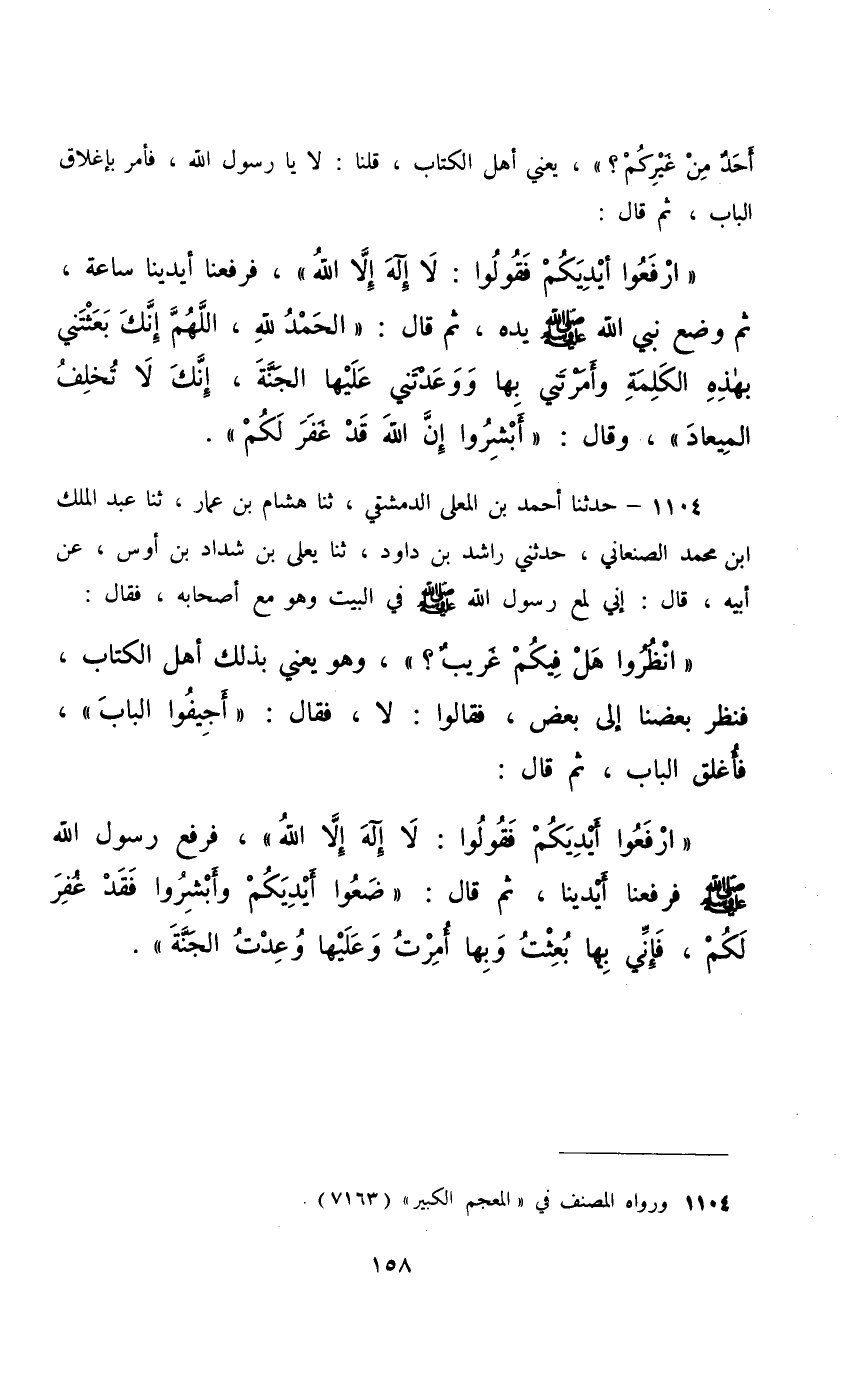 أَحَدٌ مِنْ غَيْرِكُمْ؟ » ، يعني أهل الكتاب ، قلنا : لا يا رسول الله ، فأمر بإغلاق
الباب ، ثم قال :
« ارْفَعُوا أيْدِيَكُمْ فَقُولُوا : لَا إِلَهَ إِلَّا اللهُ » ، فرفعنا أيدينا ساعة ،
ثم وضع نبي الله ﷺ يده ، ثم قال : « الحَمْدُ للهِ ، اللَّهُمَّ إِنَّكَ بَعَثْتَني
بهٰذِهِ الكَلِمَةِ وأَمَرْتَني بِها وَوَعَدْتَني عَلَيْها الجَنَّةَ ، إِنَّكَ لَا تُخلِفُ
المِيعادَ » ، وقال : « أَبْشِرُوا إِنَّ اللهَ قَدْ غَفَرَ لَكُمْ » .
١١٠٤ – حدثنا أحمد بن المعلى الدمشقي ، ثنا هشام بن عمار ، ثنا عبد الملك
ابن محمد الصنعاني ، حدثني راشد بن داود ، ثنا يعلى بن شداد بن أوس ، عن
أبيه ، قال : إني لمع رسول الله ﷺ في البيت وهو مع أصحابه ، فقال :
« انْظُرُوا هَلْ فِيكُمْ غَريبٌ؟ » ، وهو يعني بذلك أهل الكتاب ،
فنظر بعضنا إلى بعض ، فقالوا : لا ، فقال : « أَجِيفُوا البابَ » ،
فأُغلق الباب ، ثم قال :
« ارْفَعُوا أَيْدِيَكُمْ فَقُولُوا : لَا إِلَهَ إِلَّا اللهُ » ، فرفع رسول الله
ﷺ فرفعنا أَيْدينا ، ثم قال : « ضَعُوا أَيْدِيَكُمْ وأَبْشِرُوا فَقَدْ غُفِرَ
لَكُمْ ، فَإِنِّي بِها بُعِثْتُ وَبِها أُمِرْتُ وَعَلَيْها وُعِدْتُ الجَنَّةَ » .
١١٠٤ ورواه المصنف في « المعجم الكبير » (٧١٦٣) .
١٥٨